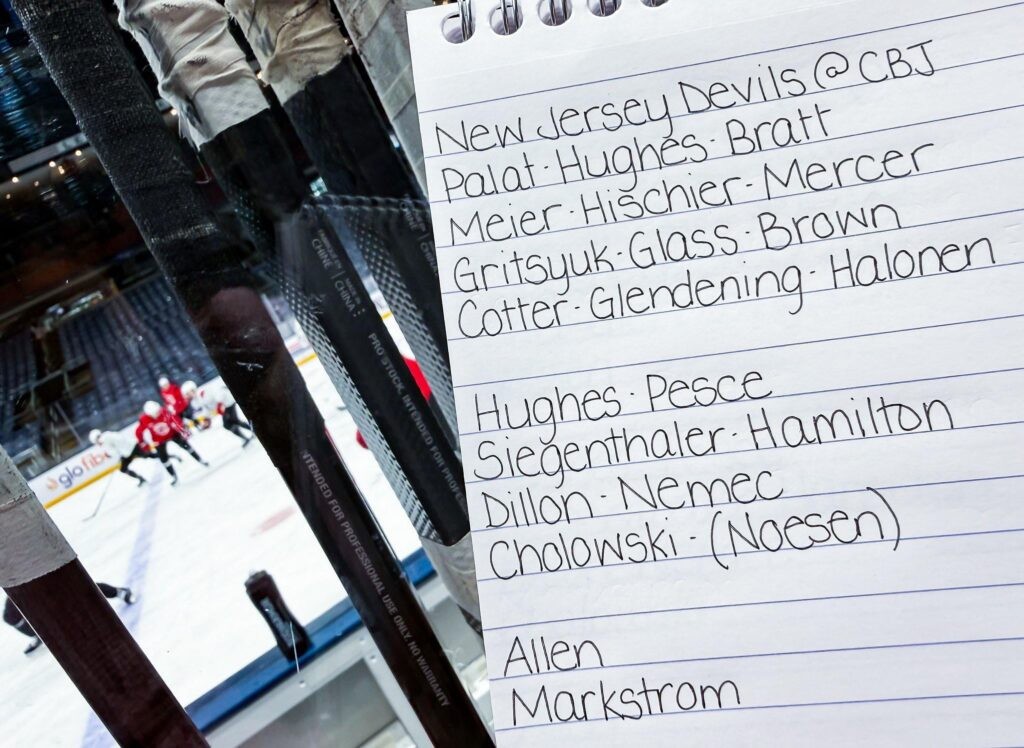 New Jersey Devils @ CBJ
Palat · Hughes · Bratt
Meier · Hischier · Mercer
Gritsyuk · Glass · Brown
Cotter · Glendening · Halonen
Hughes · Pesce
Siegenthaler · Hamilton
Dillon · Nemec
Cholowski · (Noesen)
Allen
Markstrom
glofibe
PRO STOCK. INTENDED FOR PROFE
NTENDED FOR PROFESSIONAL USE ONLY. NO WARRANTY
CHINE
CHINA